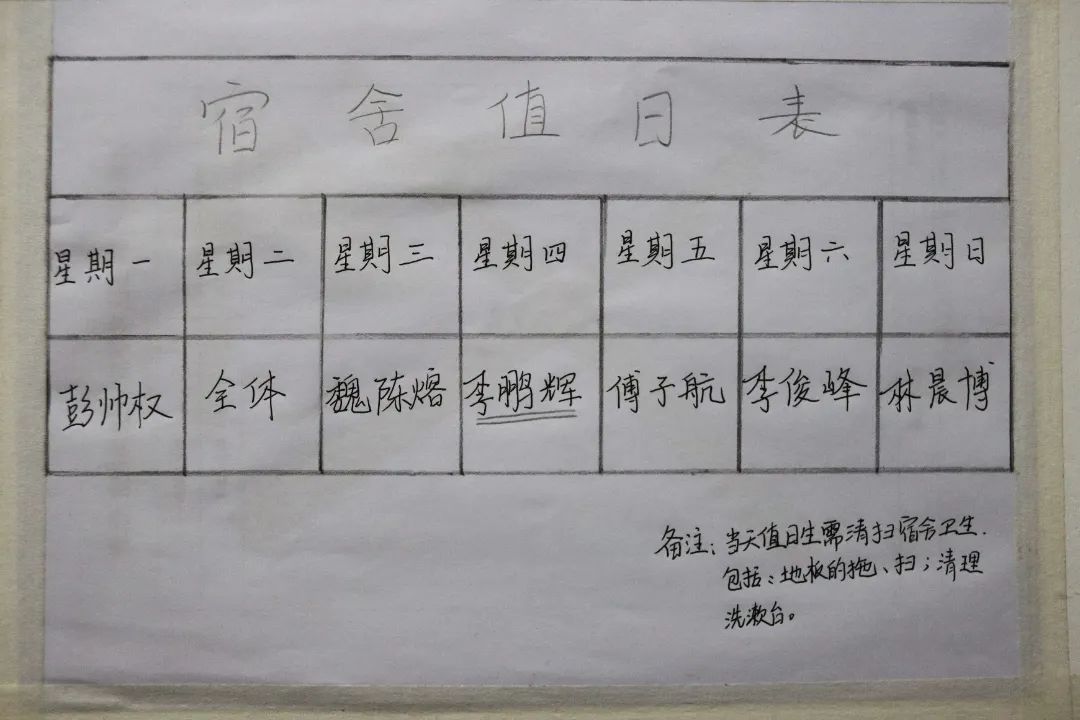 宿舍值日表
星期一 星期二 星期三 星期四 星期五 星期六 星期日
彭帅权 全体 魏陈熔 李鹏辉 傅子航 李俊峰 林晨博
备注：当天值日生需清扫宿舍卫生.
包括：地板的拖、扫；清理
洗漱台。